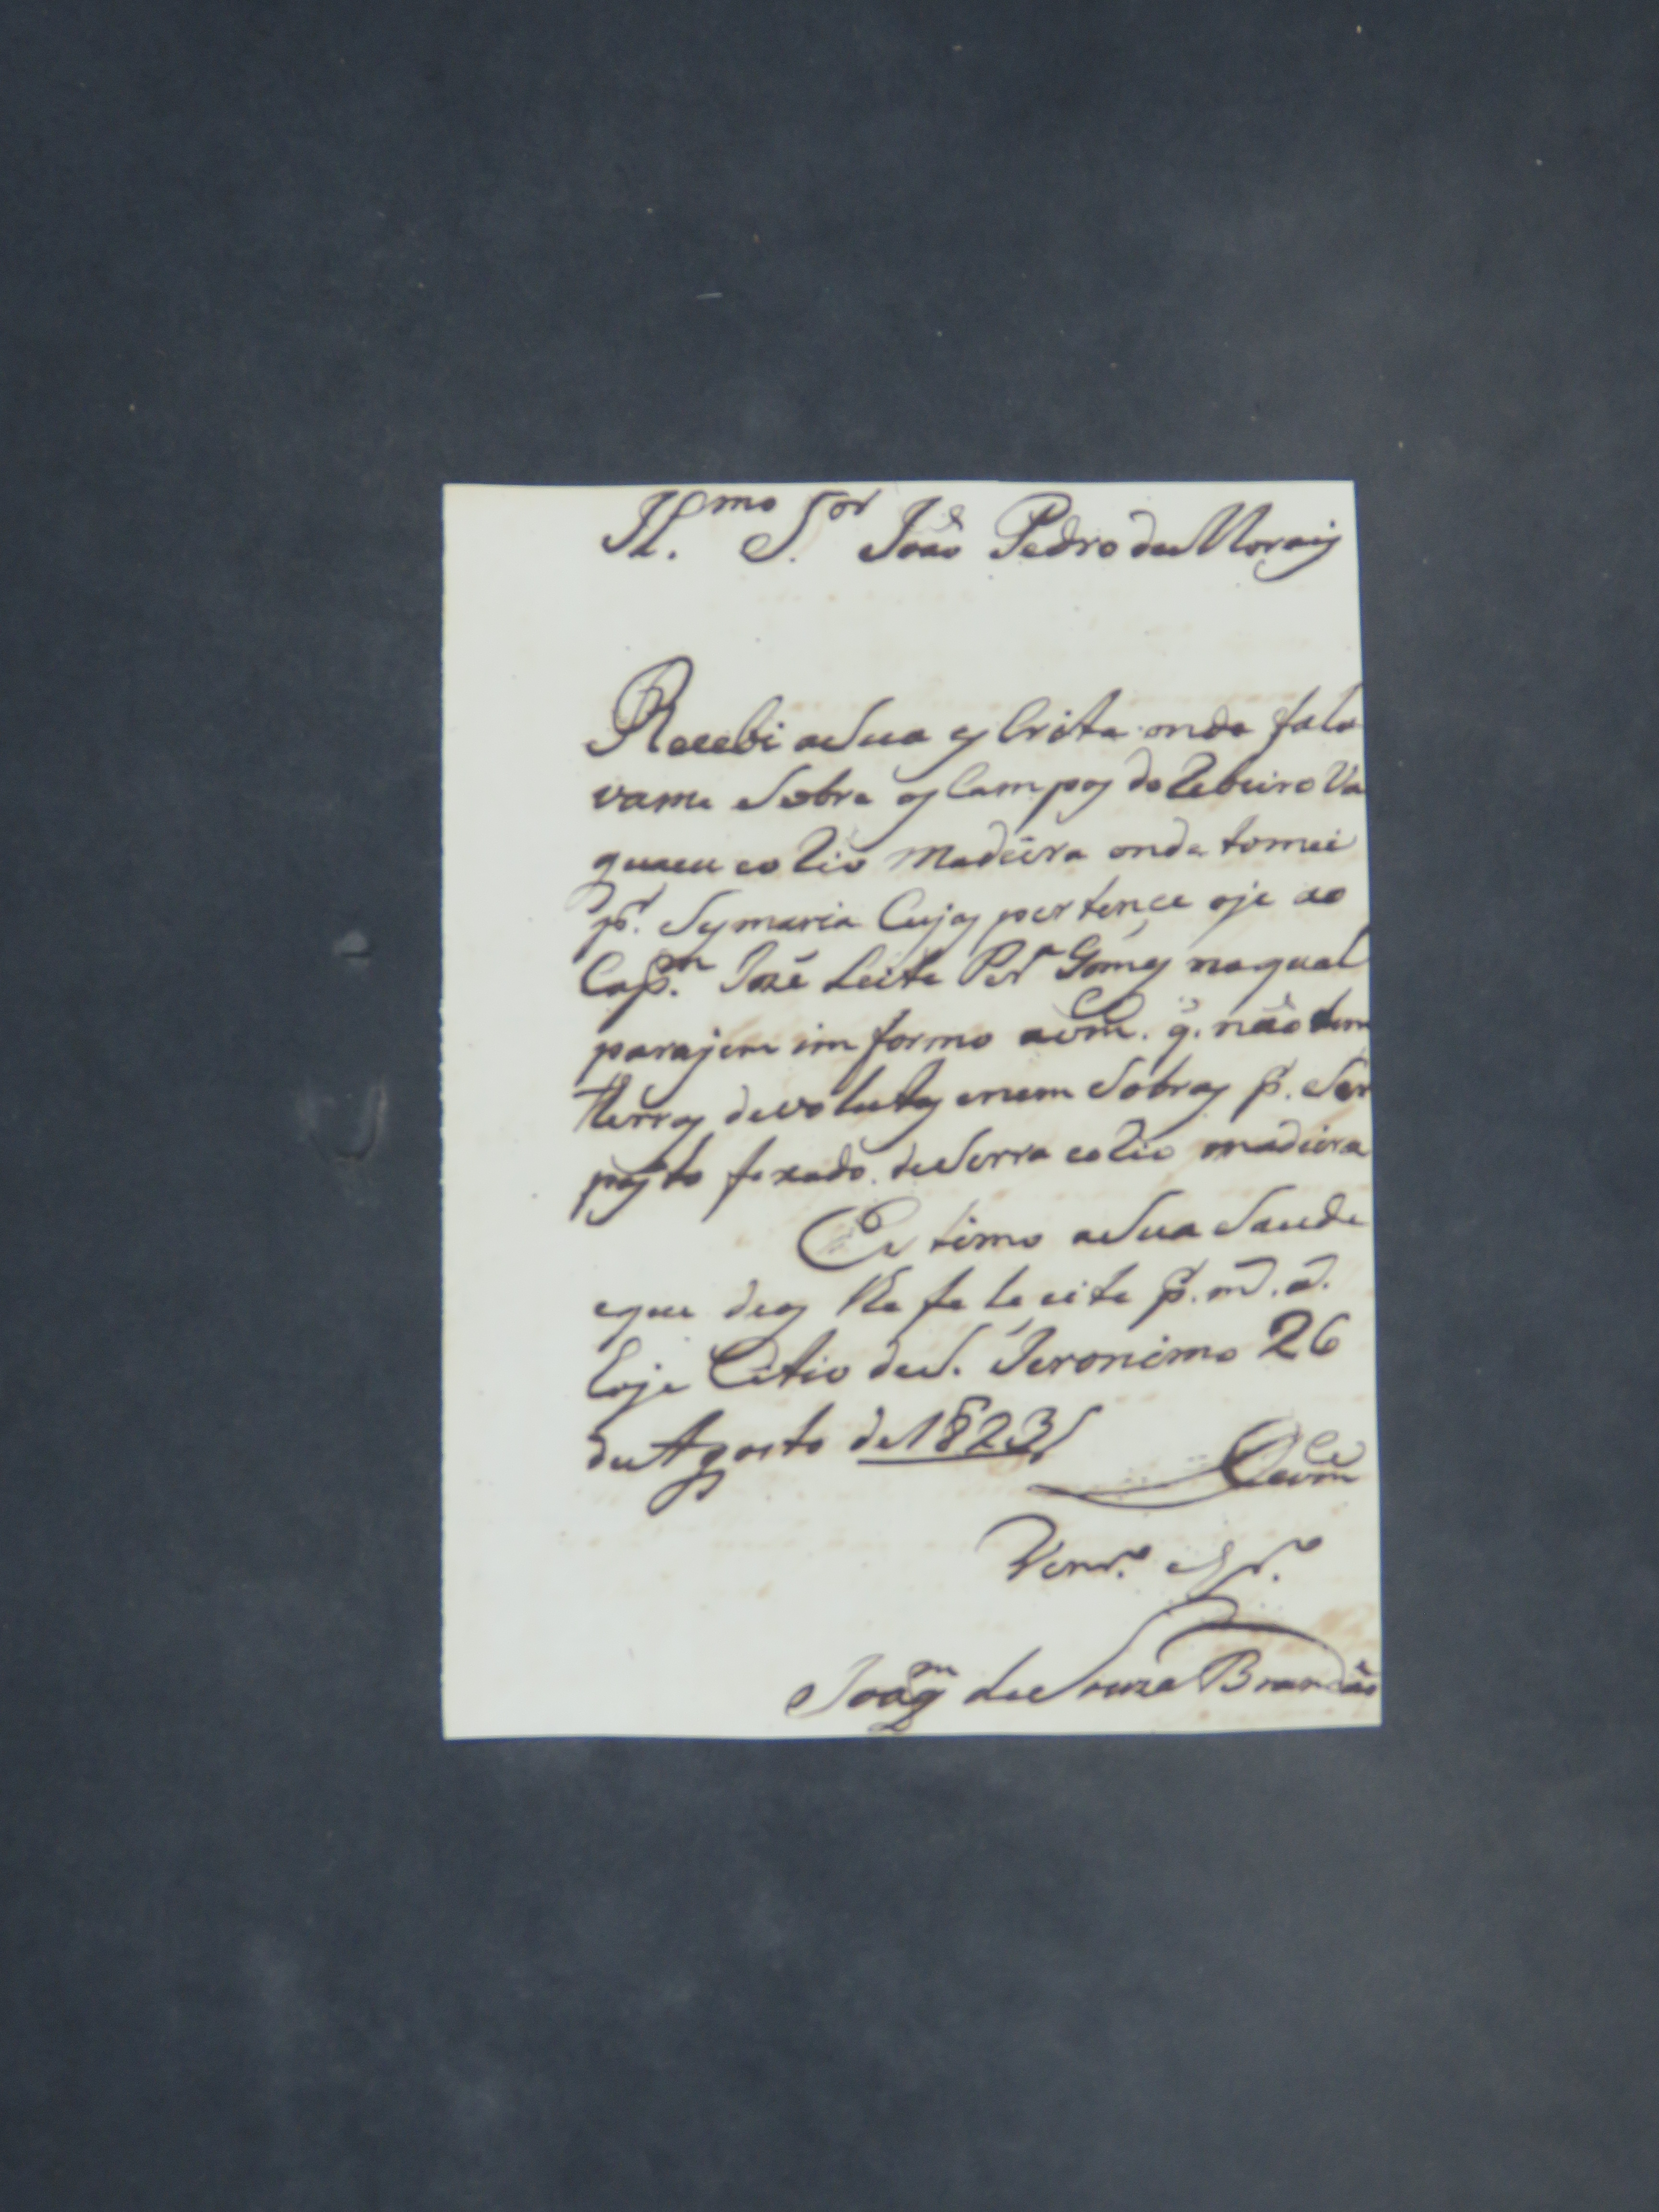 Il.mo S.or João Pedro de Morais
Recebi a sua escrita onde fala
vame sobre os Campos do Rebeiro Va
quaeu eo Rio Madeira onde tomei
p.r Sesmaria Cujos pertençe oje ao
Cap.m José Leite Per.a Gomes naqual
parajem im formo avm. q. não tem
terras devolutas enem sobras p. ser
pasto fexado de serra eo Rio madeira
Estimo a sua saude
eque deos lhe felecite p. m. a.
Eoje Citio de S. Jeronimo 26
de Agosto de 1823
De vm.ce
Vener.
Joaq.m de Souza Brandão